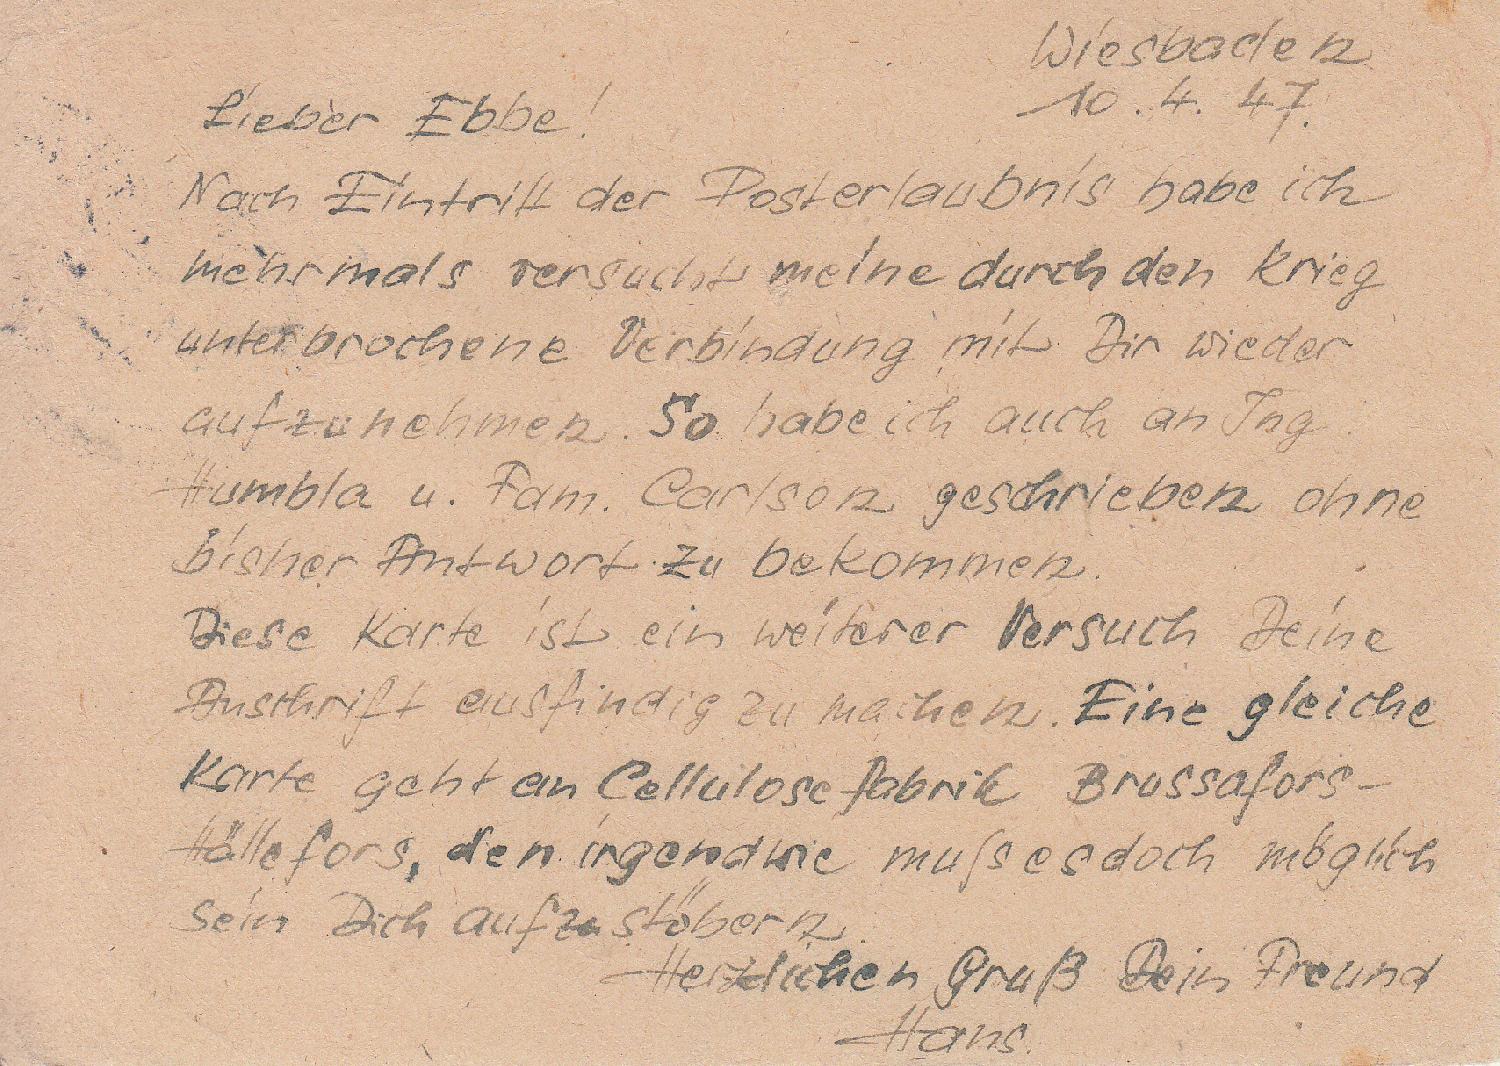 Wiesbaden
10.4.47.
Lieber Ebbe!
Nach Eintritt der Posterlaubnis habe ich
mehrmals versucht meine durch den Krieg
unterbrochene Verbindung mit Dir wieder
aufzunehmen. So habe ich auch an Ing.
Humbla u. Fam. Carlson geschrieben ohne
bisher Antwort zu bekommen.
Diese Karte ist ein weiterer Versuch Deine
Anschrift ausfindig zu machen. Eine gleiche
Karte geht an Cellulosefabrik Brussafors-
Hällefors, den irgendwie muſs es doch möglich
sein Dich aufzustöbern.
Herzlichen Gruß Dein Freund
Hans.